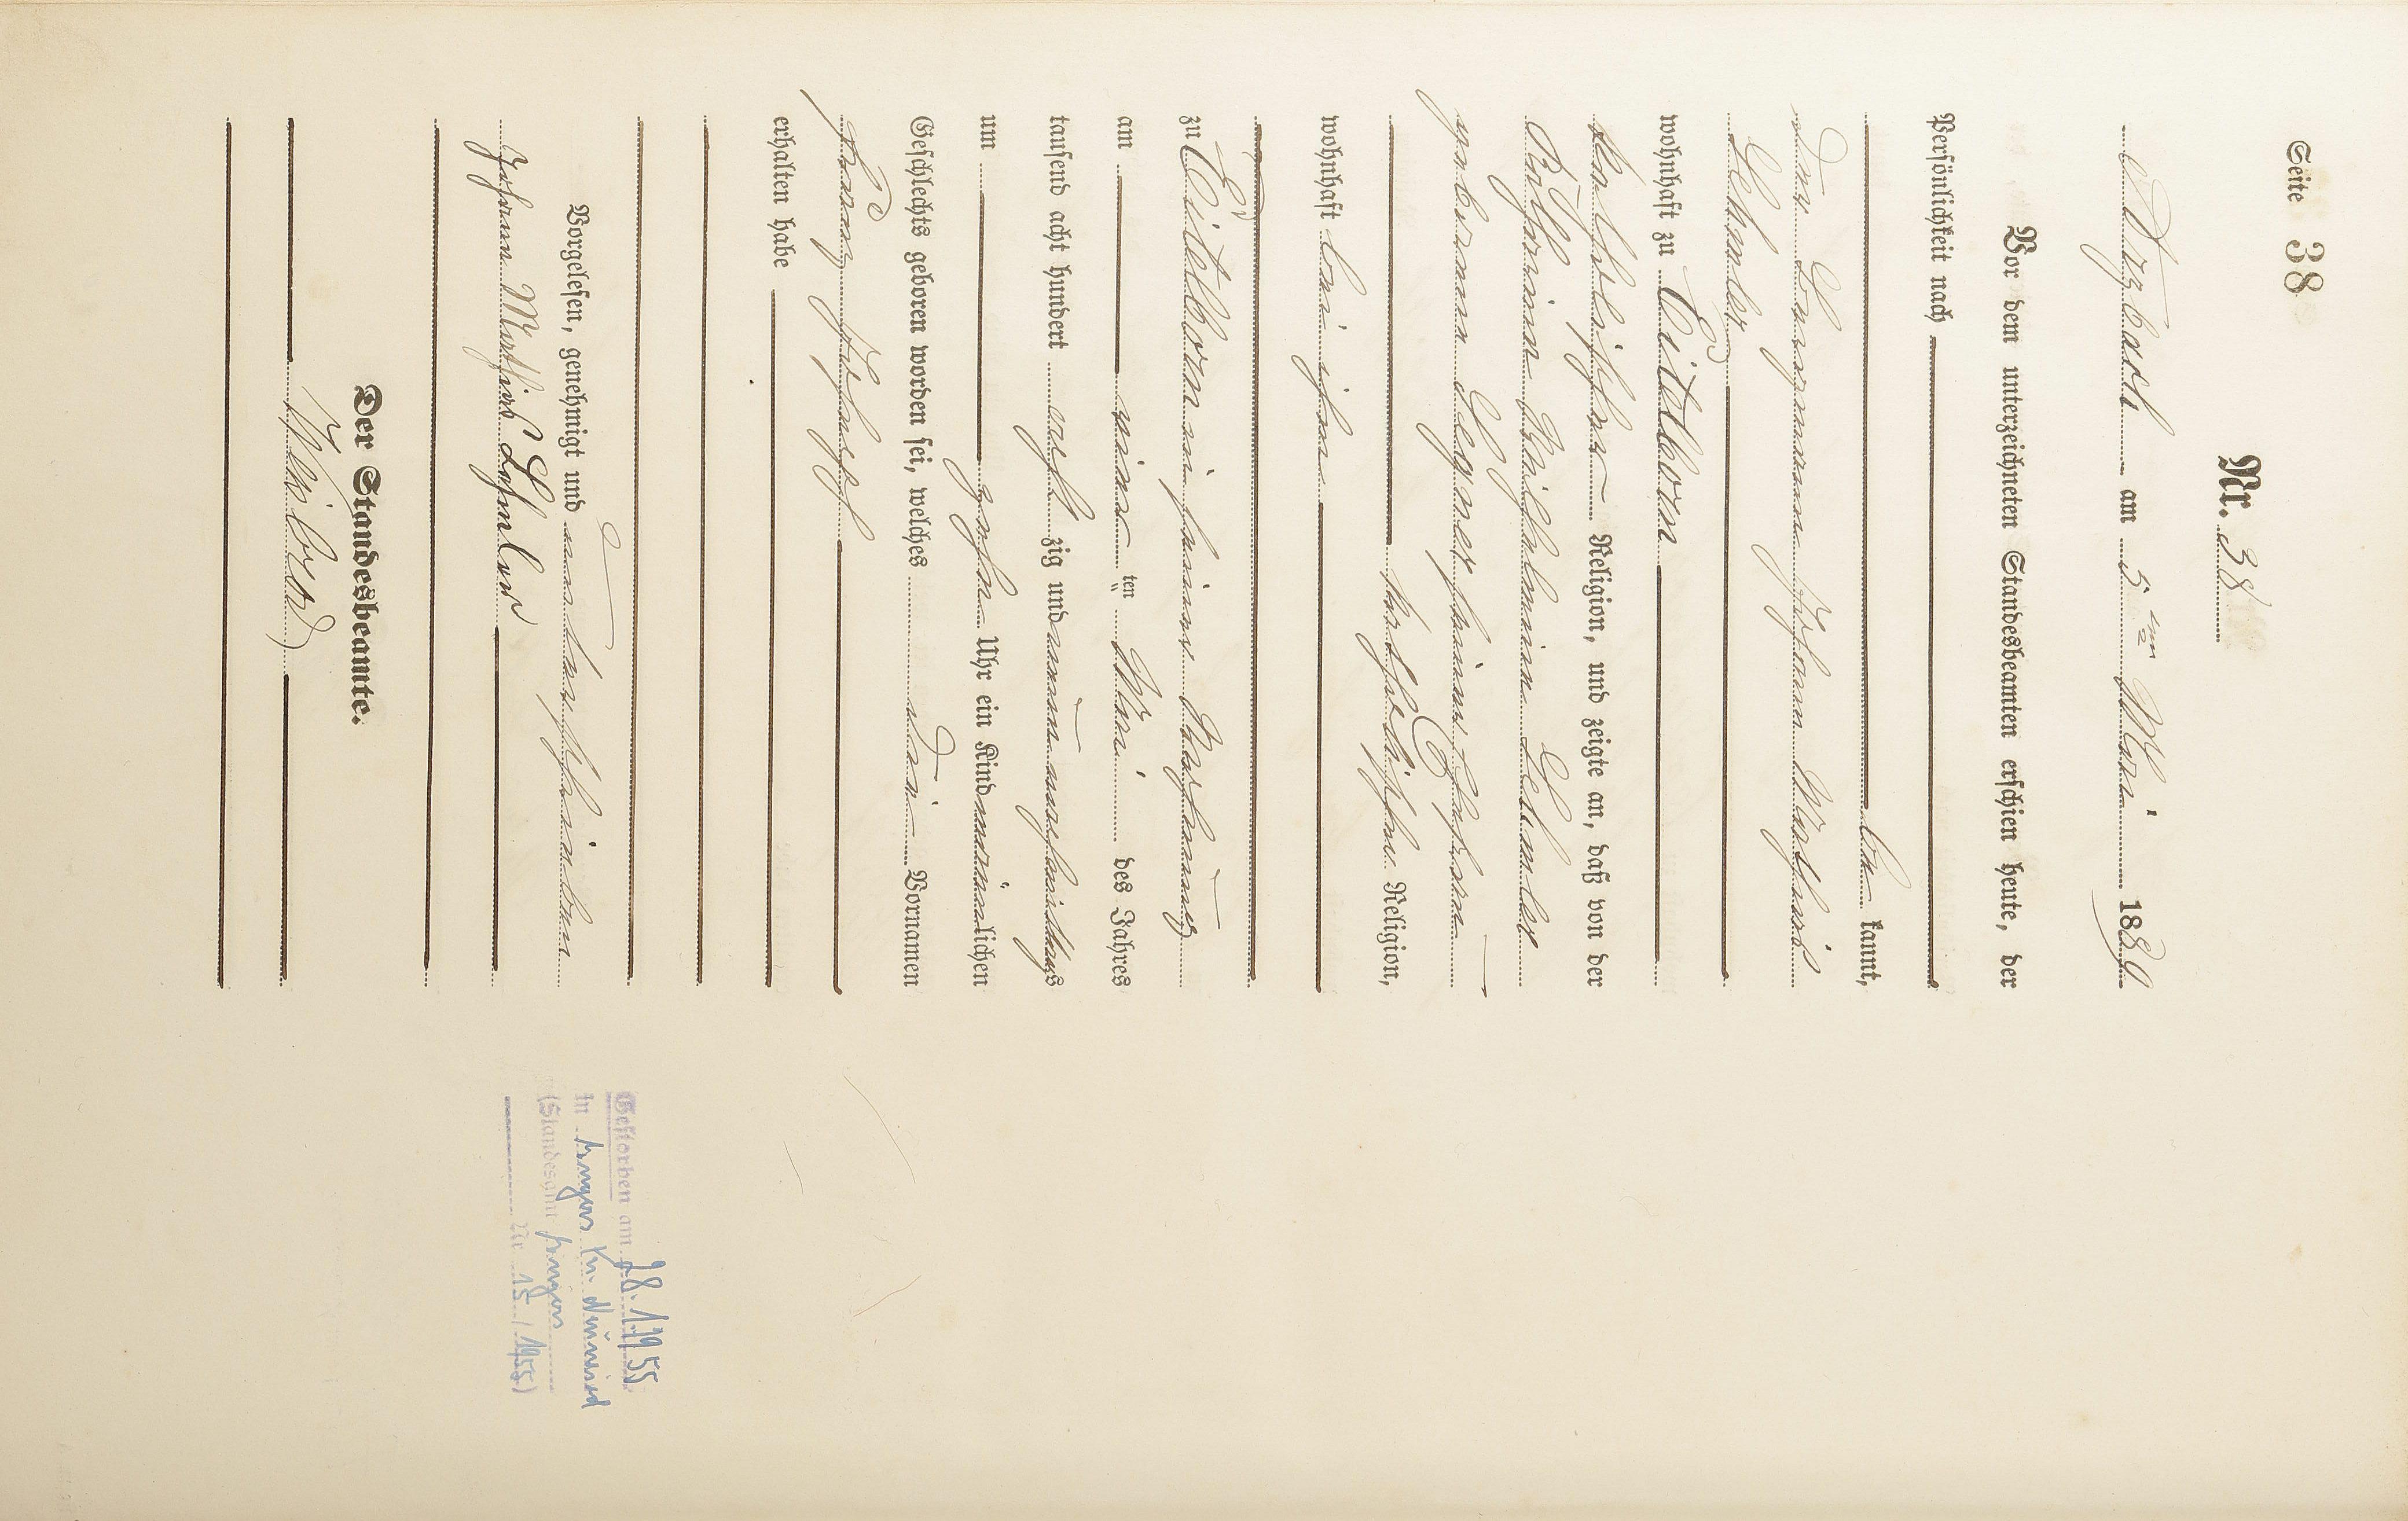 Seite 38
Nr. 38
Arzbach am 5ten Mai 1889
Vor dem unterzeichneten Standesbeamten erschien heute, der
Persönlichkeit nach
be kannt,
der Bergmann Johann Mathias
Lehmler
wohnhaft zu Eitelborn
katholischer Religion, und zeigte an, daß von der
Wilhelmine Lehmler
geborenen Legner seiner Ehefrau
katholischer Religion,
wohnhaft bei ihm
zu Eitelborn in seiner Wohnung
am vier ten Mai des Jahres
tausend acht hundert acht zig und neun nachmittags
um zehn Uhr ein Kind männlichen
Geschlechts geboren worden sei, welches die Vornamen
Franz Joseph
erhalten habe
Vorgelesen, genehmigt und unterschrieben
Johann Mathias Lehmler
Der Standesbeamte.
Gestorben am 28.1.1955
in Kr. Neuwied
(Standesamt
Nr. 15 / 1955)